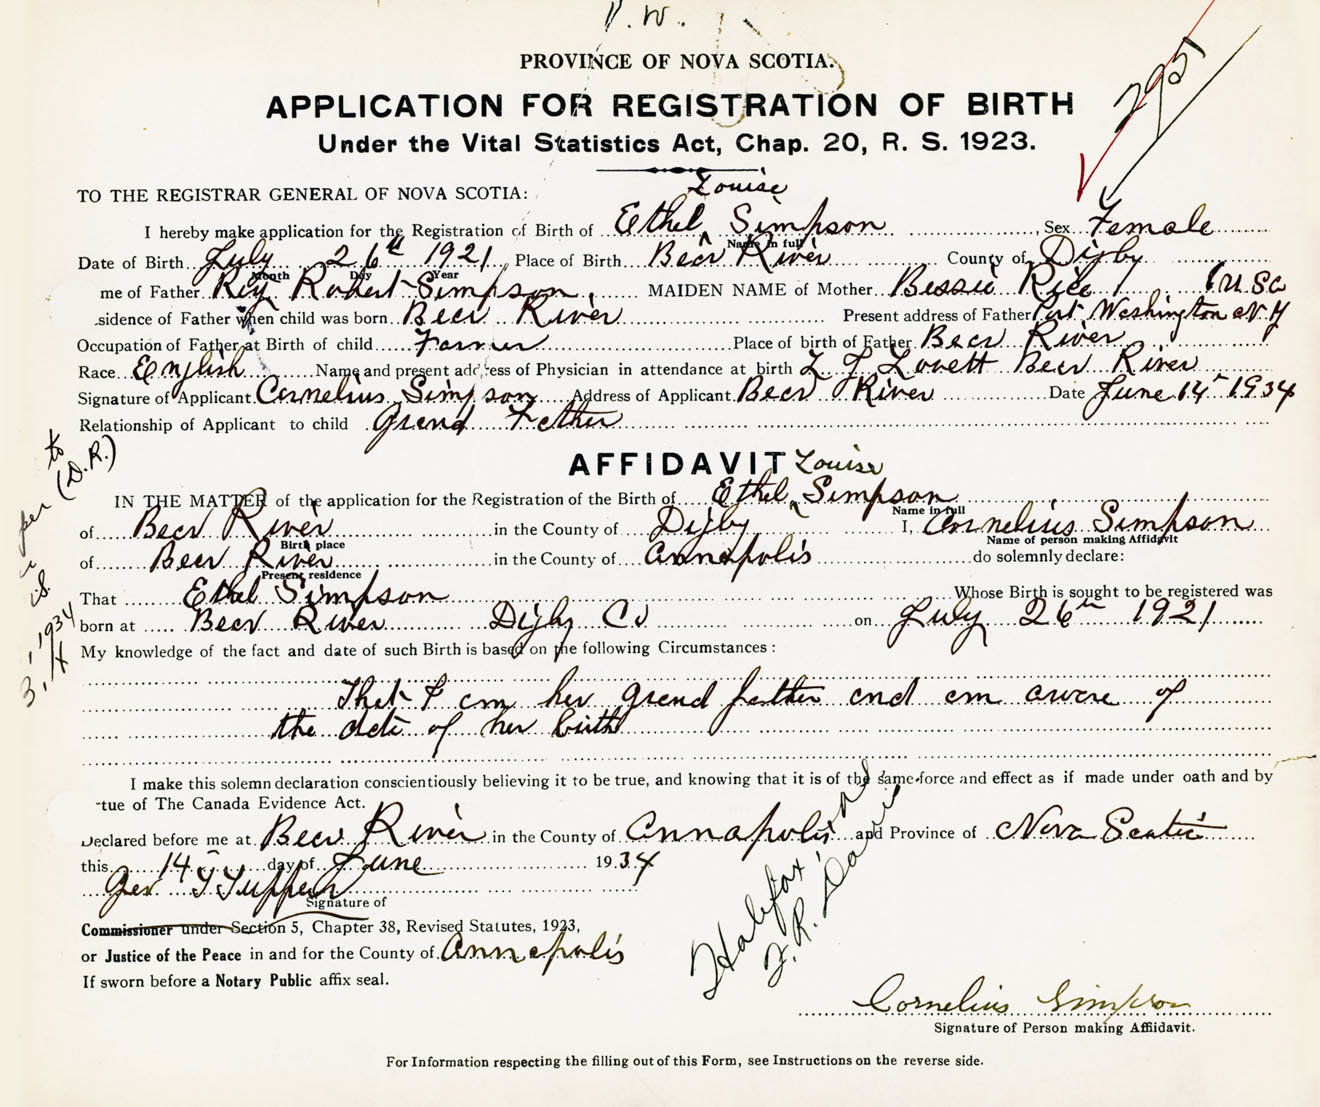 P.W.
PROVINCE OF NOVA SCOTIA.
2951
APPLICATION FOR REGISTRATION OF BIRTH
Under the Vital Statistics Act, Chap. 20, R. S. 1923.
TO THE REGISTRAR GENERAL OF NOVA SCOTIA:
Louise
I hereby make application for the Registration of Birth of Ethel ^ Simpson Sex Female
Name in full
Date of Birth July 26th 1921 Place of Birth Bear River County of Digby
Month Day Year
me of Father Robert Simpson MAIDEN NAME of Mother Bessie Rice (U.S.a
sidence of Father when child was born Bear River Present address of Father Port Washington N.Y
Occupation of Father at Birth of child Farmer Place of birth of Father Bear River
Race English Name and present address of Physician in attendance at birth L J Lovett Bear River
Signature of Applicant Cornelius Simpson Address of Applicant Bear River Date June 14th 1934
Relationship of Applicant to child Grand Father
to
(D.R.)
per
AFFIDAVIT
Louise
IN THE MATTER of the application for the Registration of the Birth of Ethel ^ Simpson
Name in full
of Bear River in the County of Digby I, Cornelius Simpson
Birth place Name of person making Affidavit
of Bear River in the County of Annapolis do solemnly declare:
Present residence
That Ethel Simpson Whose Birth is sought to be registered was
born at Bear River Digby Co on July 26th 1921
1934
My knowledge of the fact and date of such Birth is based on the following Circumstances :
That I am her grand father and am aware of
the date of her birth
I make this solemn declaration conscientiously believing it to be true, and knowing that it is of the same force and effect as if made under oath and by
tue of The Canada Evidence Act.
Declared before me at Bear River in the County of Annapolis and Province of Nova Scotia
this 14th day of June 1934
Geo T Tupper
Signature of
Commissioner under Section 5, Chapter 38, Revised Statutes, 1923,
or Justice of the Peace in and for the County of Annapolis
If sworn before a Notary Public affix seal.
Halifax
F.R. Davis
Cornelius Simpson
Signature of Person making Affidavit.
For Information respecting the filling out of this Form, see Instructions on the reverse side.